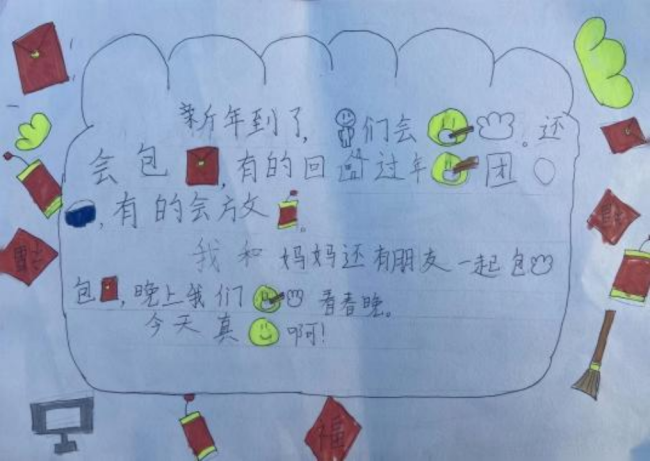 新年到了,们会。还
会包,有的回过年团
,有的会放。
我和妈妈还有朋友一起包
包,晚上我们看春晚。
今天真啊!
福